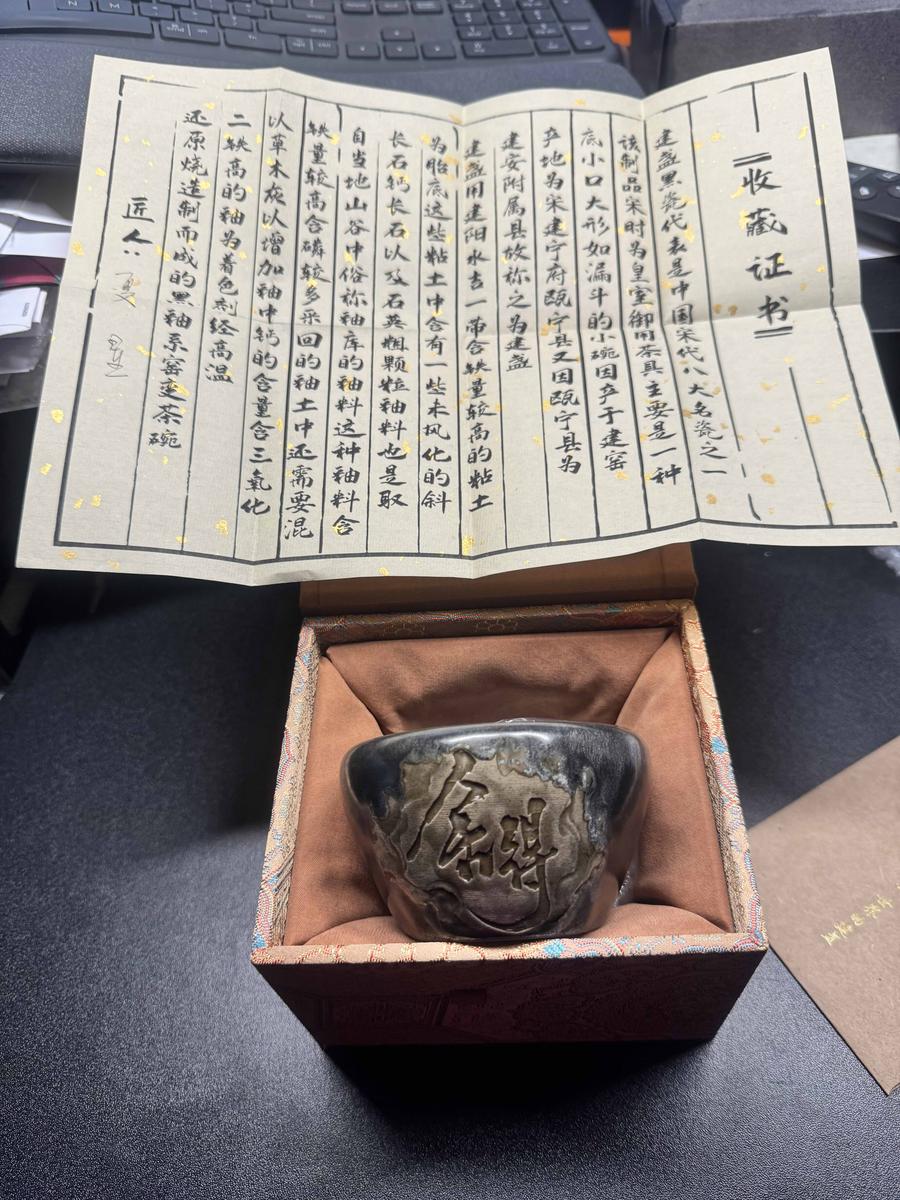 收藏证书
建盏黑瓷代表是中国宋代八大名瓷之一
该制品宋时为皇室御用茶具主要是一种
底小口大形如漏斗的小碗因产于建窑
产地为宋建宁府瓯宁县又因瓯宁县为
建安附属县故称之为建盏
建盏用建阳水吉一带含铁量较高的粘土
为胎底这些粘土中含有一些未风化的斜
长石钙长石以及石英粗颗粒釉料也是取
自当地山谷中俗称釉库的釉料这种釉料含
铁量较高含磷较多采回的釉土中还需要混
以草木灰以增加釉中钙的含量含三氧化
二铁高的釉为着色剂经高温
还原烧造制而成的黑釉系窑变茶碗
匠人：